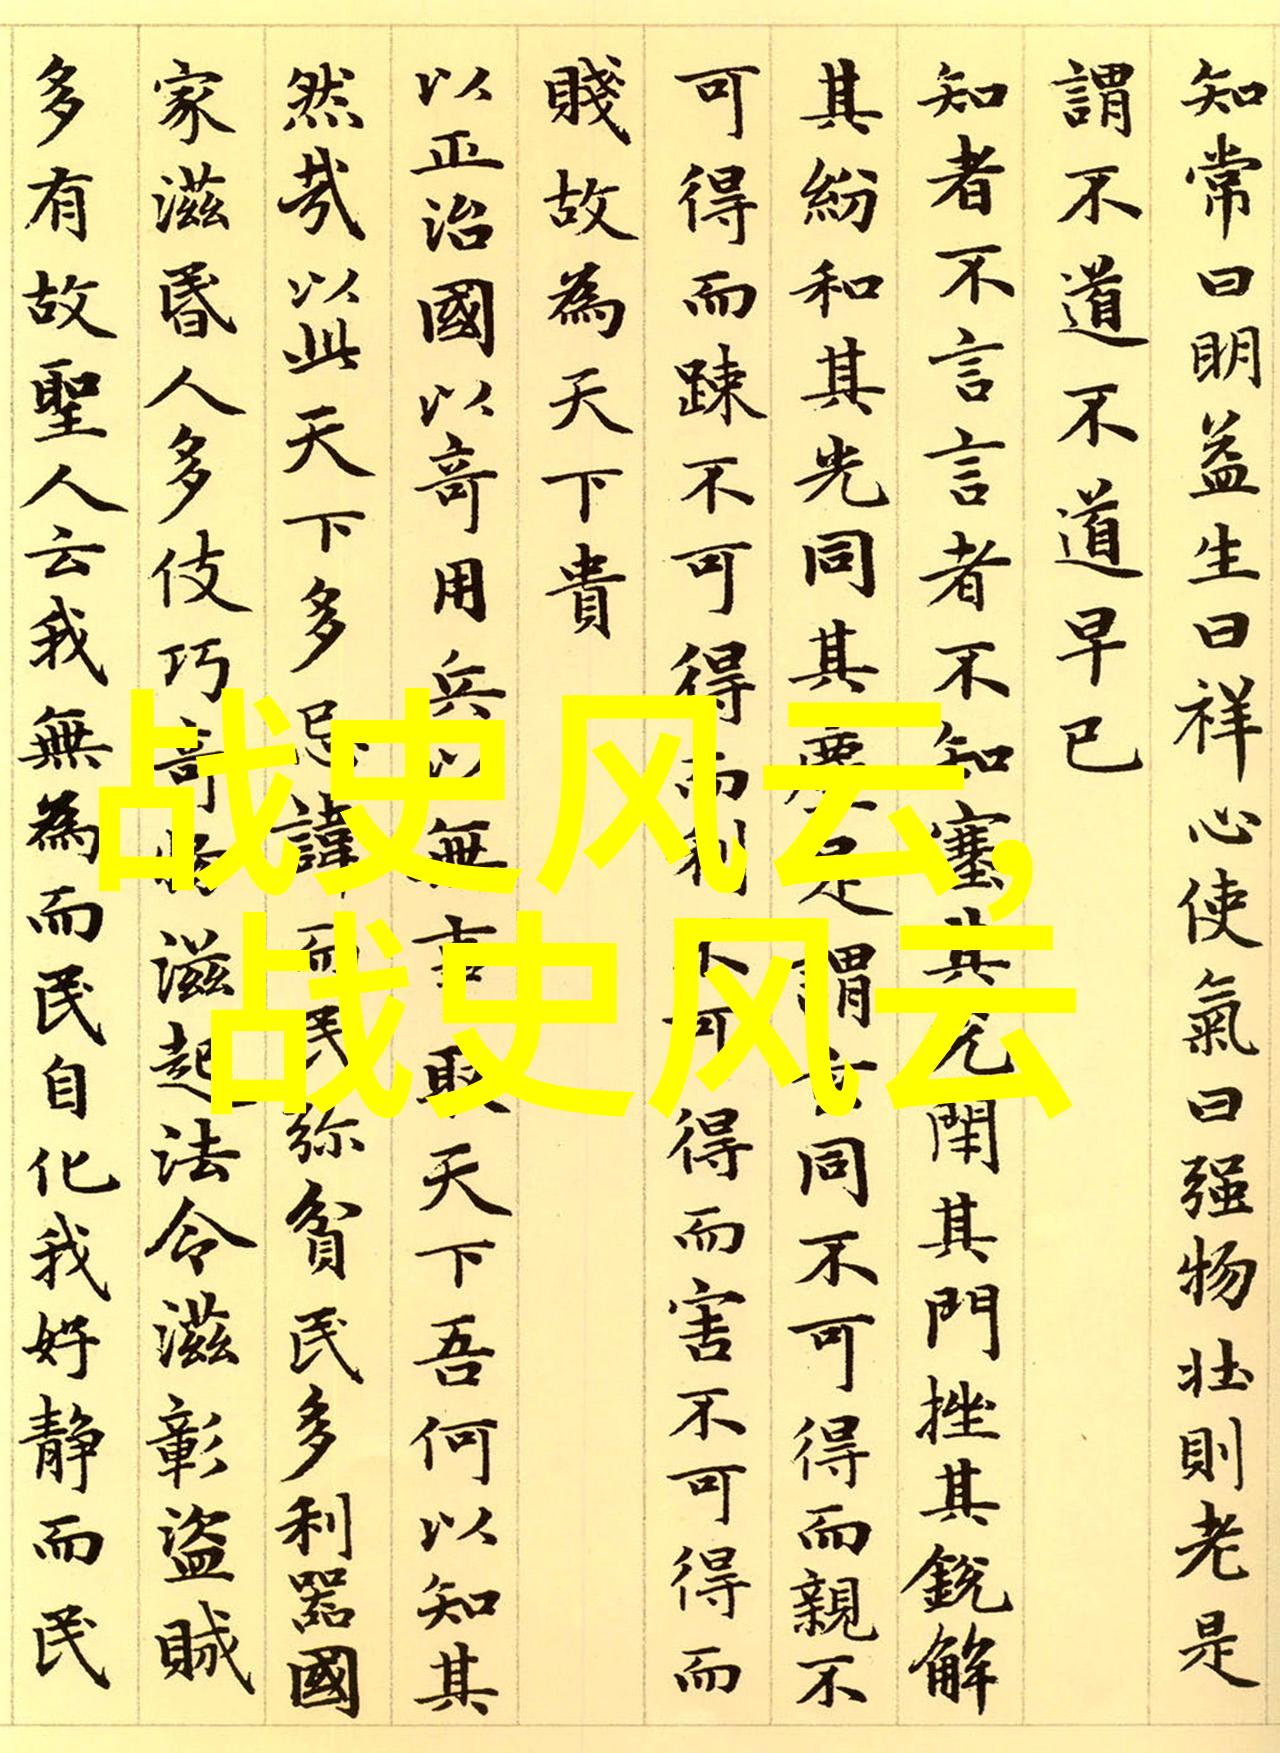 知常曰明益生曰祥心使氣曰强物壯則老是
謂不道不道早已
知者不言言者不知塞其兊閇其門挫其銳解
其紛和其光同其塵是謂玄同不可得而親不
可得而踈不可得而利不可得而害不可得而
賤故為天下貴
以正治國以奇用兵以無事取天下吾何以知其
然㢤以此天下多忌諱而民弥貧民多利器國
家滋昬人多伎巧奇物滋起法令滋彰盗賊
多有故聖人云我無為而民自化我好静而民
战史风云,
战史风云